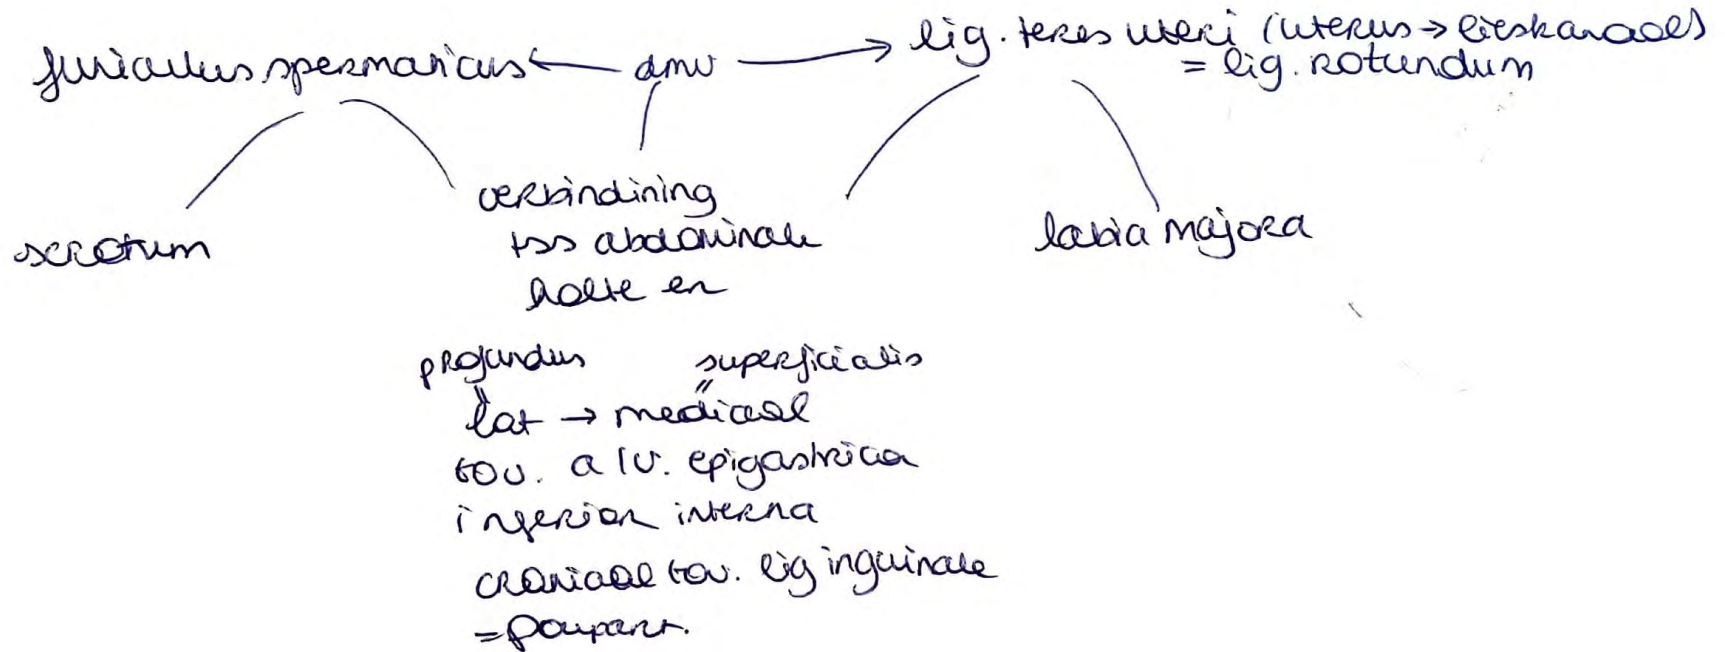 funiculus spermaticus ← dmv → lig. teres uteri (uterus → lieskanaal)
= lig. rotundum
scrotum
verbindining
tss abdominale
holte en
labia majora
profundus superficialis
lat → mediaal
tov. a/v. epigastrica
inferior interna
craniaal tov. lig inguinale
= Poupart.